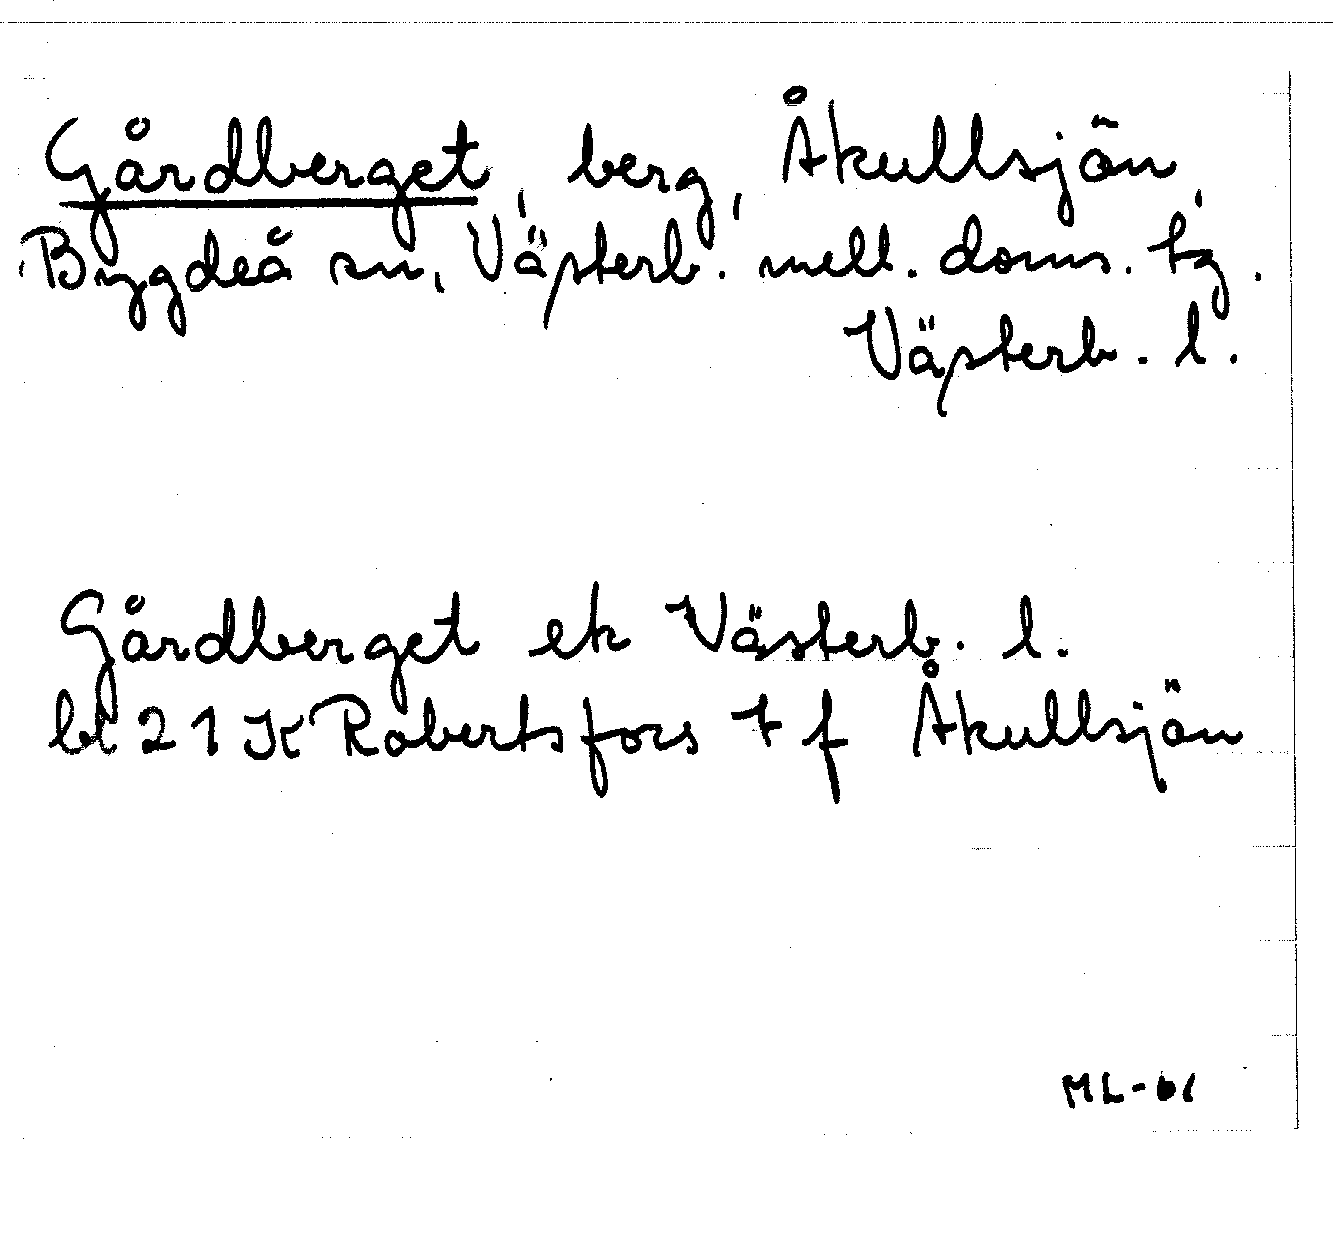 Gårdberget, berg, Åkullsjön,
Bygdeå sn, Västerb. mell. doms. tg.
Västerb. l.
Gårdberget ek Västerb. l.
bl 21 K Robertsfors 7 f Åkullsjön
ML-61